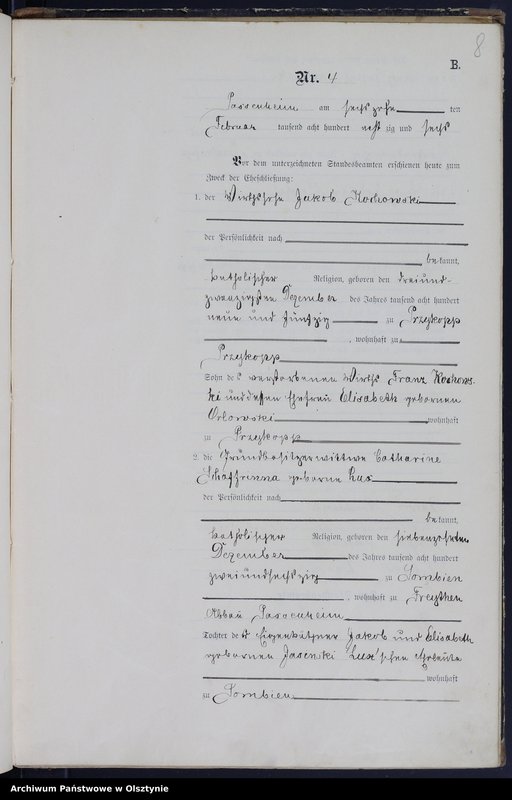 8
B.
Nr. 4
Passenheim am sechszehn ten
Februar tausend acht hundert acht zig und sechs
Vor dem unterzeichneten Standesbeamten erschienen heute zum
Zweck der Eheschließung:
1. der Wirthssohn Jakob Kochowski
der Persönlichkeit nach
bekannt,
katholischer Religion, geboren den dreiund-
zwanzigsten Dezember des Jahres tausend acht hundert
neun und fünfzig zu Przykopp
, wohnhaft zu
Przykopp
Sohn des verstorbenen Wirths Franz Kochows-
ki und dessen Ehefrau Elisabeth geborenen
Orlowski wohnhaft
zu Przykopp
2. die Grundbesitzerwittwe Catharine
geborne Lux
der Persönlichkeit nach
bekannt,
katholischer Religion, geboren den siebenzehnten
Dezember des Jahres tausend acht hundert
zweiundsechszig zu
, wohnhaft zu Freythen
Abbau Passenheim
Tochter der Eigenkäthner Jakob und Elisabeth
geborenen Lux'schen Eheleute
wohnhaft
zu
Archiwum Państwowe w Olsztynie